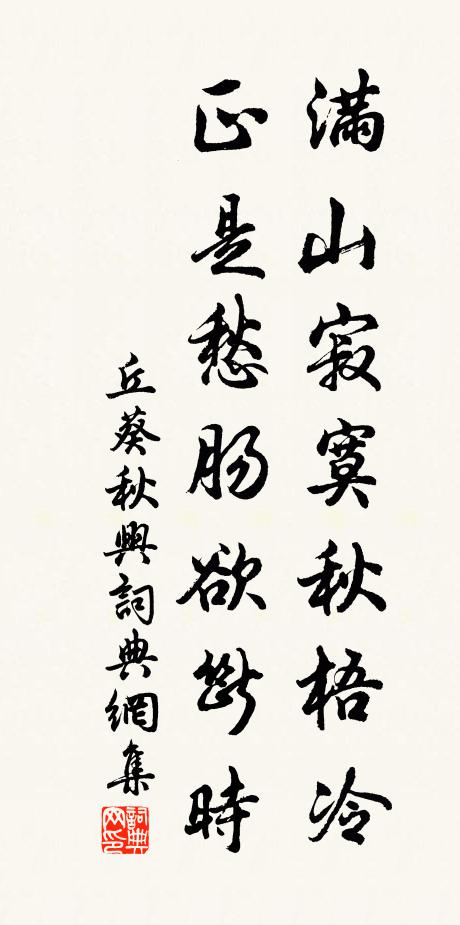 滿山寂寞秋梧冷
正是愁腸欲斷時
丘葵秋興詞典網集
詞典网印